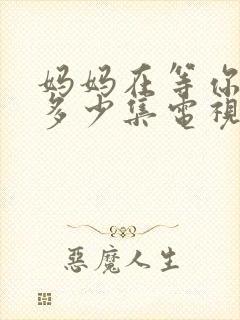 妈妈在等你
多少集電視
惡魔人生